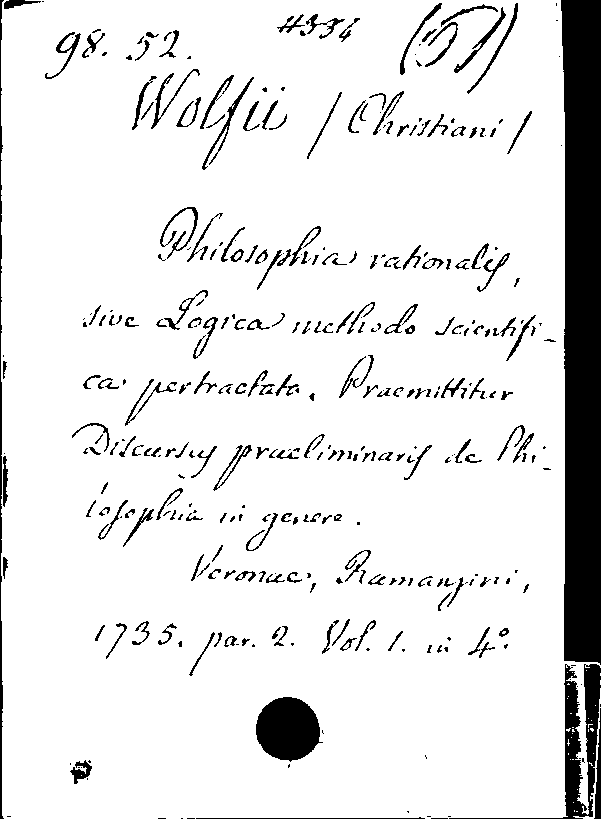 98. 52. #334 (51)
Wolfii / Christiani /
Philosophia rationalis,
sive Logica methodo scientifi-
ca pertractata. Praemittitur
Discursus praeliminaris de Phi-
losophia in genere.
Veronae, Ramanzini,
1735. par. 2. Vol. 1. in 4º.